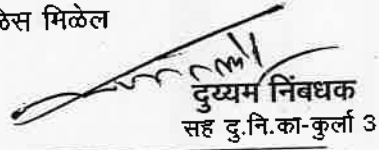 ळेस मिळेल
दुय्यम निंबधक
सह दु.नि.का-कुर्ला 3